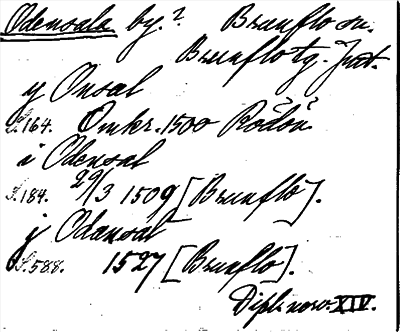 Odensala by.? Brunflo sn.
Brunflo tg. Jmt.
y Onsal
S.164. Omkr. 1500 Rödön
i Odensal
S.184. 29/3 1509 [Brunflo].
j Odansal
S.588. 1527 [Brunflo].
Dipl. norv. XIV.